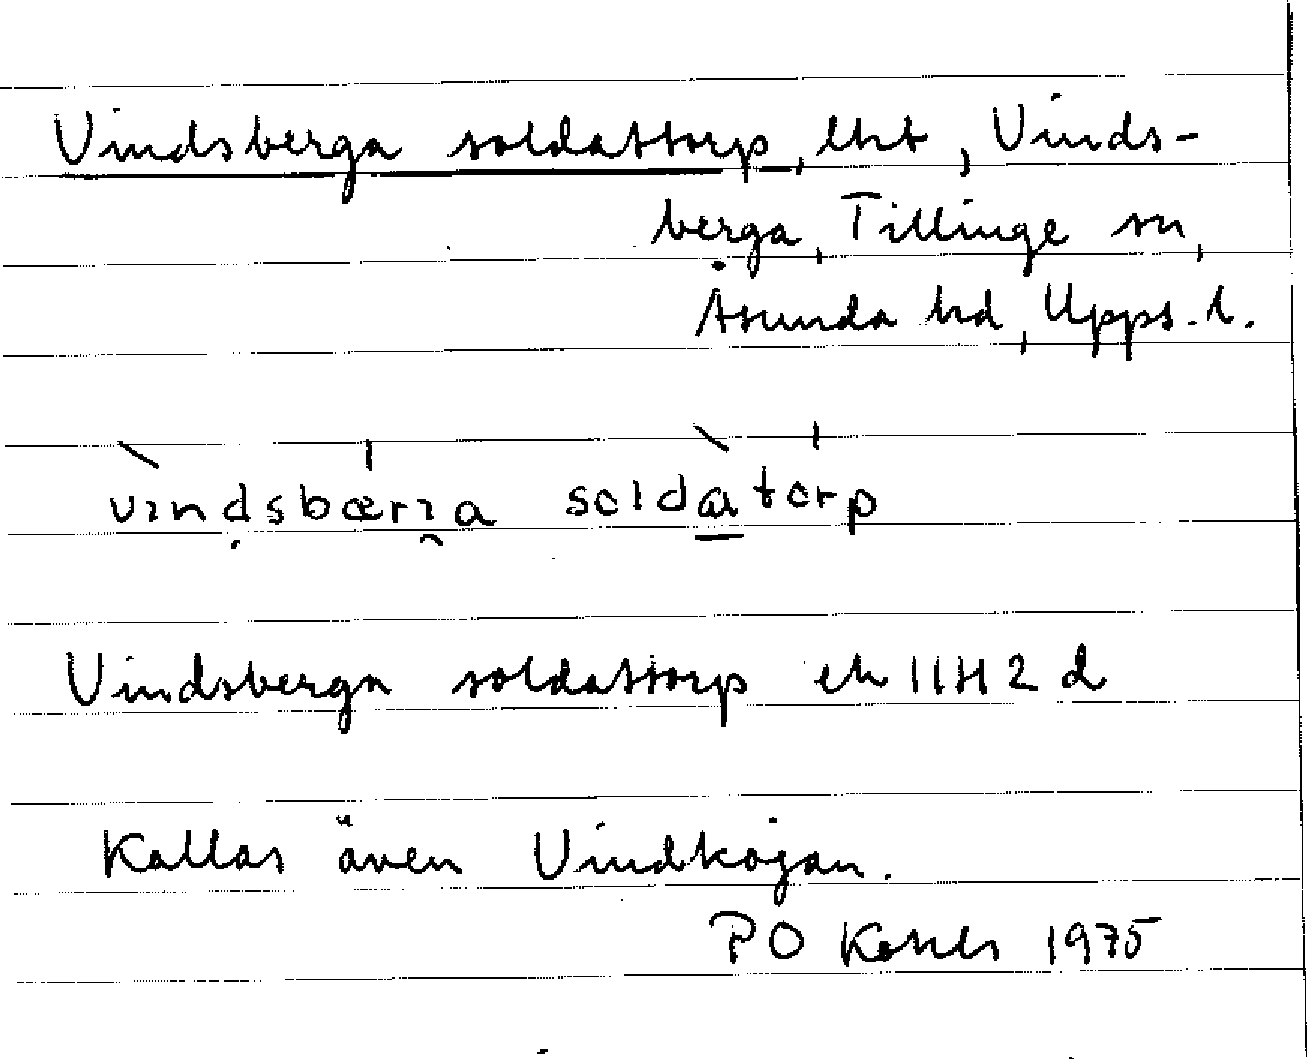 Vindsberga soldattorp, lht, Vinds-
berga, Tillinge sn,
Åsunda hd, Upps. l.
vındsbærıa soldɑtorp
Vindsberga soldattorp ek 11H2d
Kallas även Vindkojan.
PO 1975